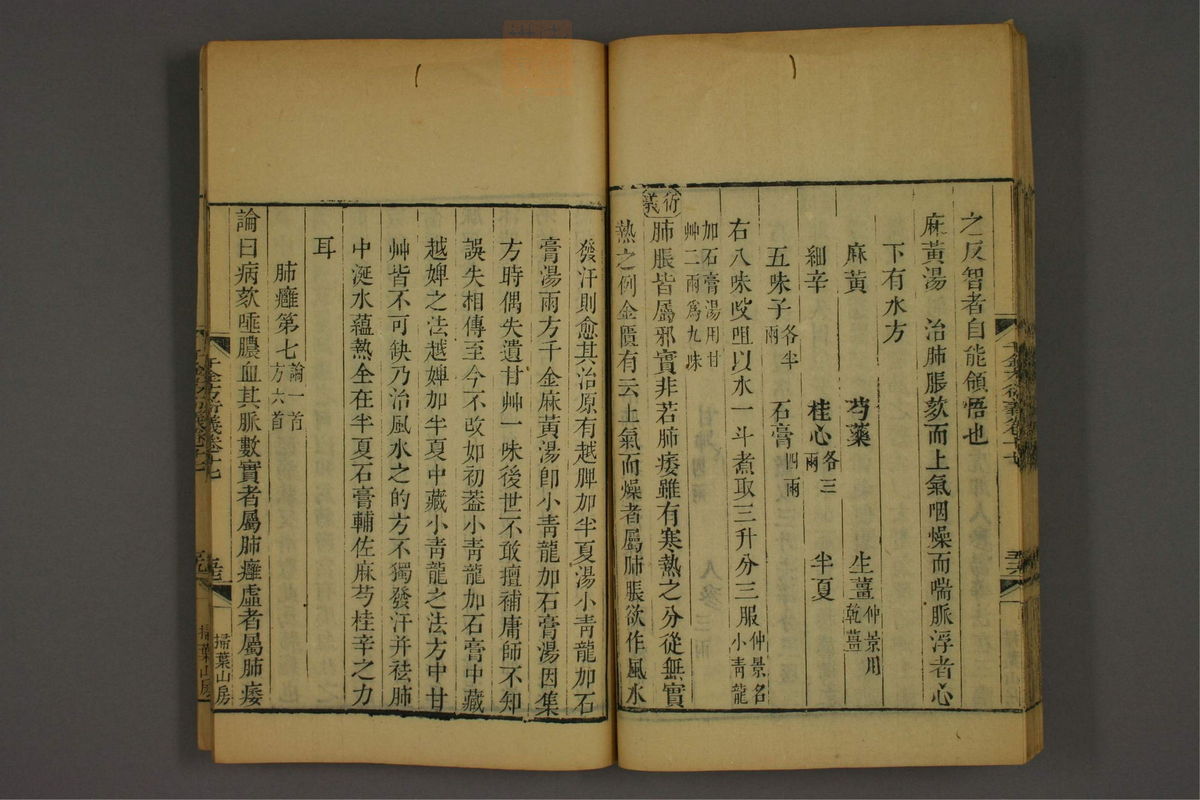 之反智者自能領悟也
麻黃湯 治肺脹欬而上氣咽燥而喘脈浮者心
下有水方
麻黃 芍藥 生薑仲景用乾薑
細辛 桂心各三兩 半夏
五味子各半兩 石膏四兩
右八味㕮咀以水一斗煮取三升分三服仲景名小青龍
加石膏湯用甘艸二兩爲九味
衍義
肺脹皆屬邪實非若肺痿雖有寒熱之分從無實
熱之例金匱有云上氣而燥者屬肺脹欲作風水
發汗則愈其治原有越脾加半夏湯小青龍加石
膏湯兩方千金麻黃湯卽小青龍加石膏湯因集
方時偶失遺甘艸一味後世不敢擅補庸師不知
誤失相傳至今不改如初葢小青龍加石膏中藏
越婢之法越婢加半夏中藏小青龍之法方中甘
艸皆不可缺乃治風水之的方不獨發汗并祛肺
中涎水蘊熱全在半夏石膏輔佐麻芍桂辛之力
耳
肺癰第七論一首方六首
論曰病欬唾膿血其脈數實者屬肺癰虛者屬肺痿
千金方衍義卷十七
掃葉山房